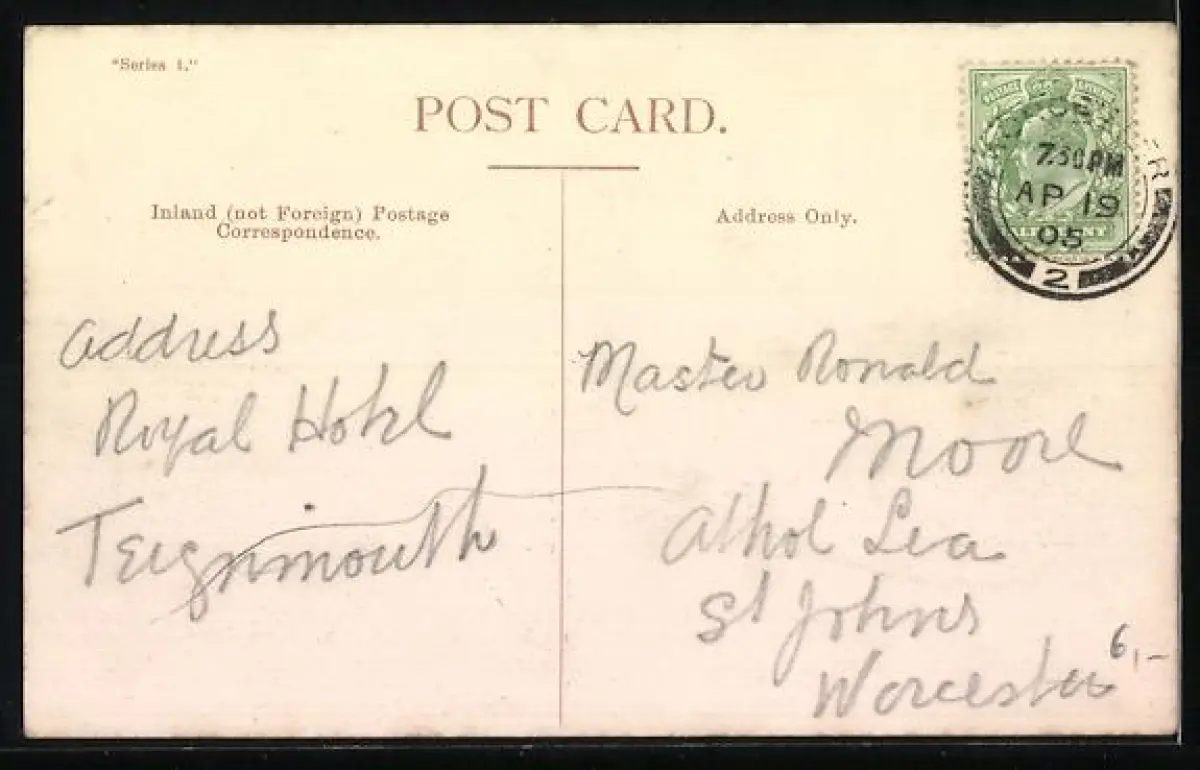 "Series 1."
POST CARD.
Inland (not Foreign) Postage
Correspondence.
Address Only.
7.30 PM
AP 19
05
2
Address
Royal Hotel
Teignmouth
Master Ronald
Moore
Athol Lea
St Johns
Worcester
6,-